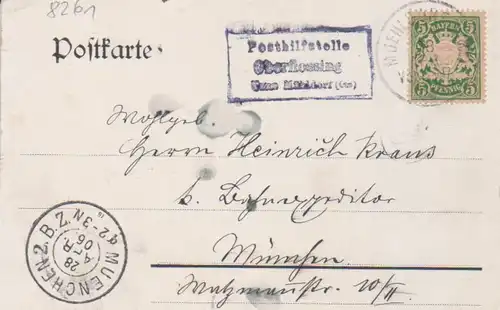 8261
Postkarte.
Posthilfstelle
Oberflossing
Taxe Mühldorf (Inn)
BAYERN
5 5
PFENNIG
Wohlgeb.
Herrn Heinrich Kraus
k. Bahnexpeditor
München
Watzmannstr. 10/II
MUENCHEN 2. B.Z.
28
APR
06